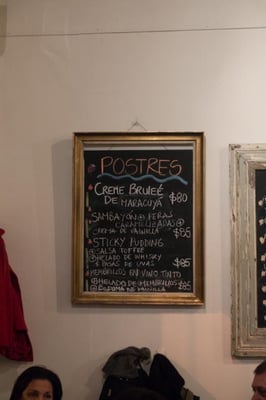 POSTRES
CREME BRULEÉ $80
DE MARACUYÁ
SAMBAYÓN & PERAS
CARAMELIZADAS &
CREMA DE VAINILLA $85
STICKY PUDDING
SALSA TOFFEE
HELADO DE WHISKY
& PASAS DE UVAS $85
MEMBRILLOS EN VINO TINTO
HELADO DE MEMBRILLOS
& ESPUMA DE VAINILLA $85